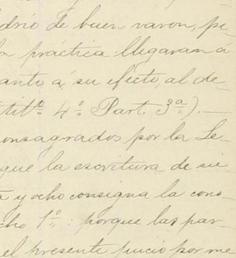 drio de buen varon, pe
la practica llegaran a
anto a su efecto al de
titº 4º Part. 3ª).—
onsagrados por la Le
que la escritura de su
a y ocho consigna la cons
cho 1º: porque las par
el presente juicio por me